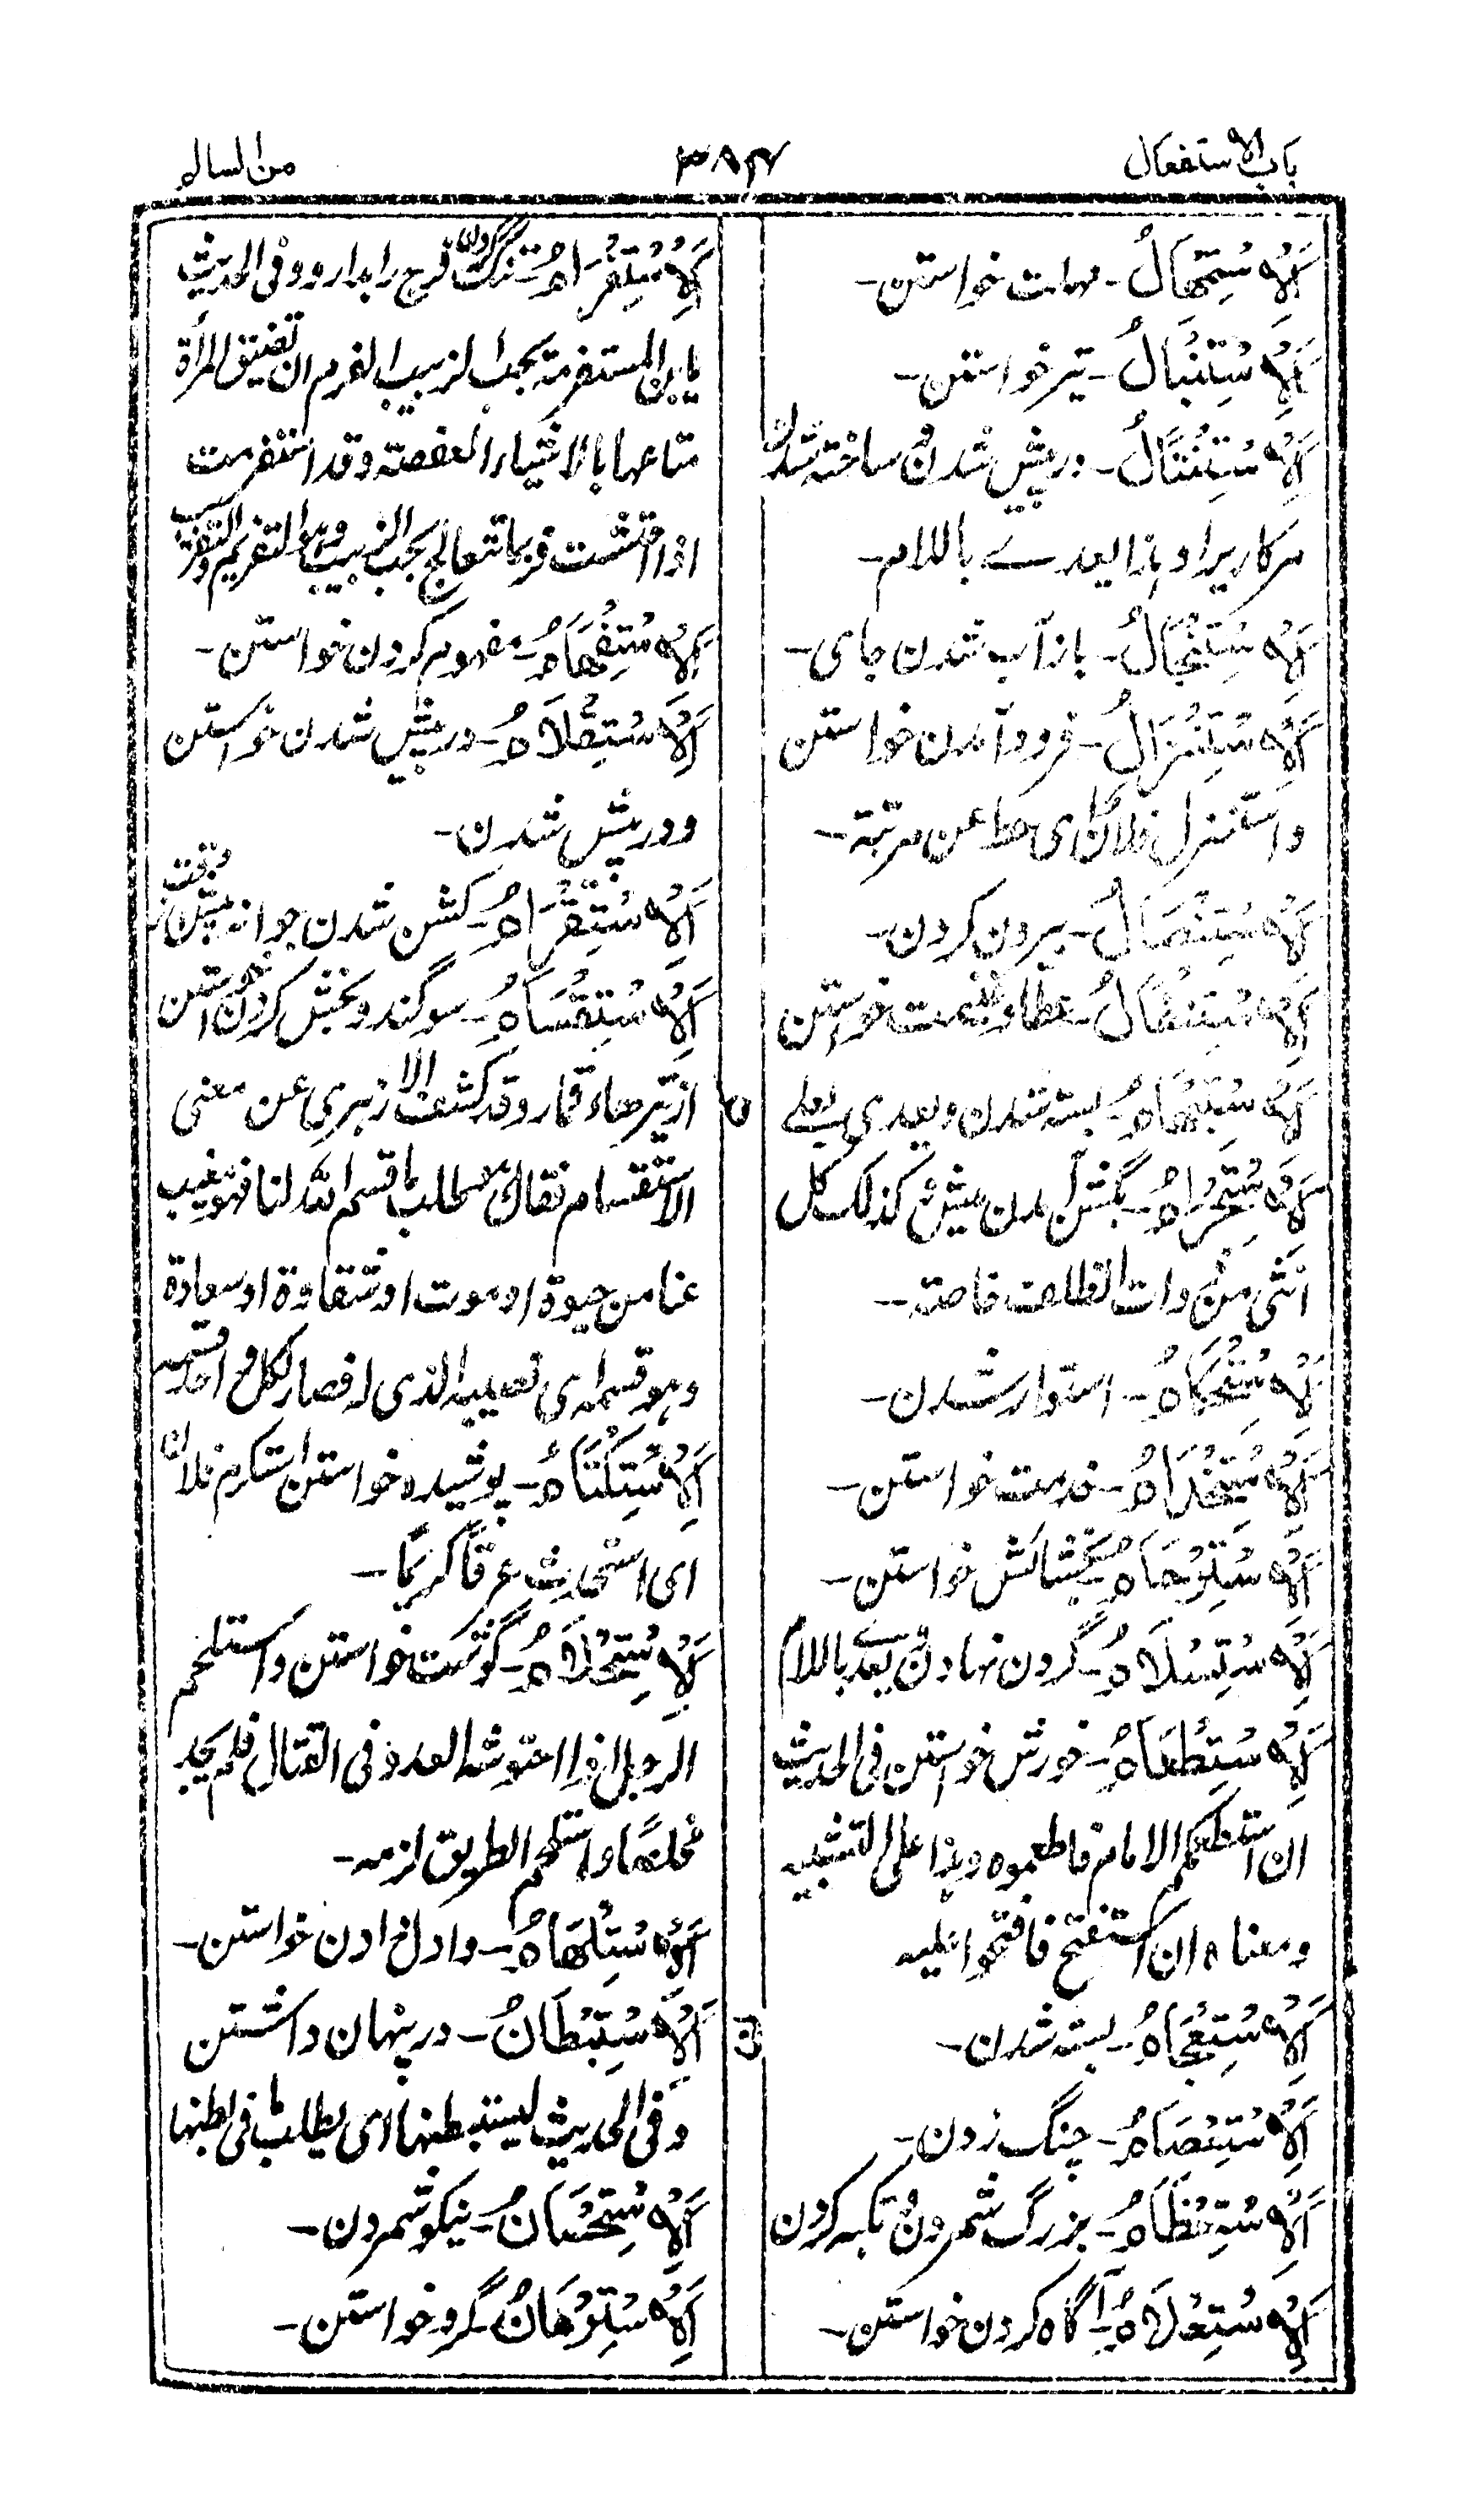 باب الاستفعال
۳۸۴
من السالم
اَلْاِسْتِمْهَالُ - مهلت خواستن -
اَلْاِسْتِنْبَالُ - تیر خواستن -
اَلْاِسْتِنْتَالُ - در پیش شدن و ساخته شدن
مر کاریرا و هذا یعدے باللام -
اَلْاِسْتِنْجَالُ - باز آب شدن جای -
اَلْاِسْتِنْزَالُ - فرود آمدن خواستن
واستنزل فلان ای حط عن مرتبة -
اَلْاِسْتِنْصَالُ - بیرون کردن -
اَلْاِسْتِنْفَالُ - عطا و غنیمت خواستن
م
اَلْاِسْتِبْهَامُ - بسته شدن و یعدی بعلی
اَلْاِسْتِحْرَامُ - بگشن آمدن میش و کذلک کل
انثی من ذوات الظلف خاصة -
اَلْاِسْتِحْكَامُ - استوار شدن -
اَلْاِسْتِخْدَامُ - خدمت خواستن -
اَلْاِسْتِرْحَامُ - بخشایش خواستن -
اَلْاِسْتِسْلَامُ - گردن نهادن و یعدے باللام
اَلْاِسْتِطْعَامُ - خورش خواستن فی الحدیث
ان استطعمکم الامام فاطعموه و هذا علی التشبیه
و معناه ان استفتح فافتحوا علیه
اَلْاِسْتِعْجَامُ - بسته شدن -
اَلْاِسْتِعْصَامُ - چنگ زدن -
اَلْاِسْتِعْظَامُ - بزرگ شمردن و تکبه کردن
اَلْاِسْتِعْلَامُ - آگاه کردن خواستن -
اَلْاِسْتِفْرَامُ - تنگ کردن فرج را بدارو و فی الحدیث
یا ابن المستفرمة بعجم الزبیب الفرم ان تضیق المرأة
متاعها بالاشیاء العفصة و قد استفرمت
اذا احتشت فربما تتعالج بعجم الزبیب و هو التفریم
اَلْاِسْتِفْهَامُ - مفهوم کردن خواستن -
اَلْاِسْتِقْدَامُ - در پیش شدن خواستن
و در پیش شدن -
اَلْاِسْتِقْرَامُ - گشن شدن جوانه پیش
اَلْاِسْتِقْسَامُ - سوگند و بخش کردن خواستن
از تیرهاء قمار و قد کشف الازهری عن معنی
الاستقسام فقال هو طلب ما قسم الله لنا فهو یغیب
عنا من حیوة او موت او شقاوة او سعادة
و هو قسمه ای نصیبه الذی له فصار لکل واحد قسمه
اَلْاِسْتِكْتَامُ - پوشیده خواستن استکرم فلان
ای استحدث عرقاً کریمًا -
اَلْاِسْتِلْحَامُ - گوشت خواستن و استلحم
الرجل اذا احتوشه العدو فی القتال فلم یجد
مخلصًا و استلحم الطریق لزمه -
اَلْاِسْتِلْهَامُ - در دل دادن خواستن -
ن
اَلْاِسْتِبْطَانُ - در پنهان داشتن
و فی الحدیث لیستبطنها ای یطلب ما فی بطنها
اَلْاِسْتِحْسَانُ - نیکو شمردن -
اَلْاِسْتِرْهَانُ - گرو خواستن -